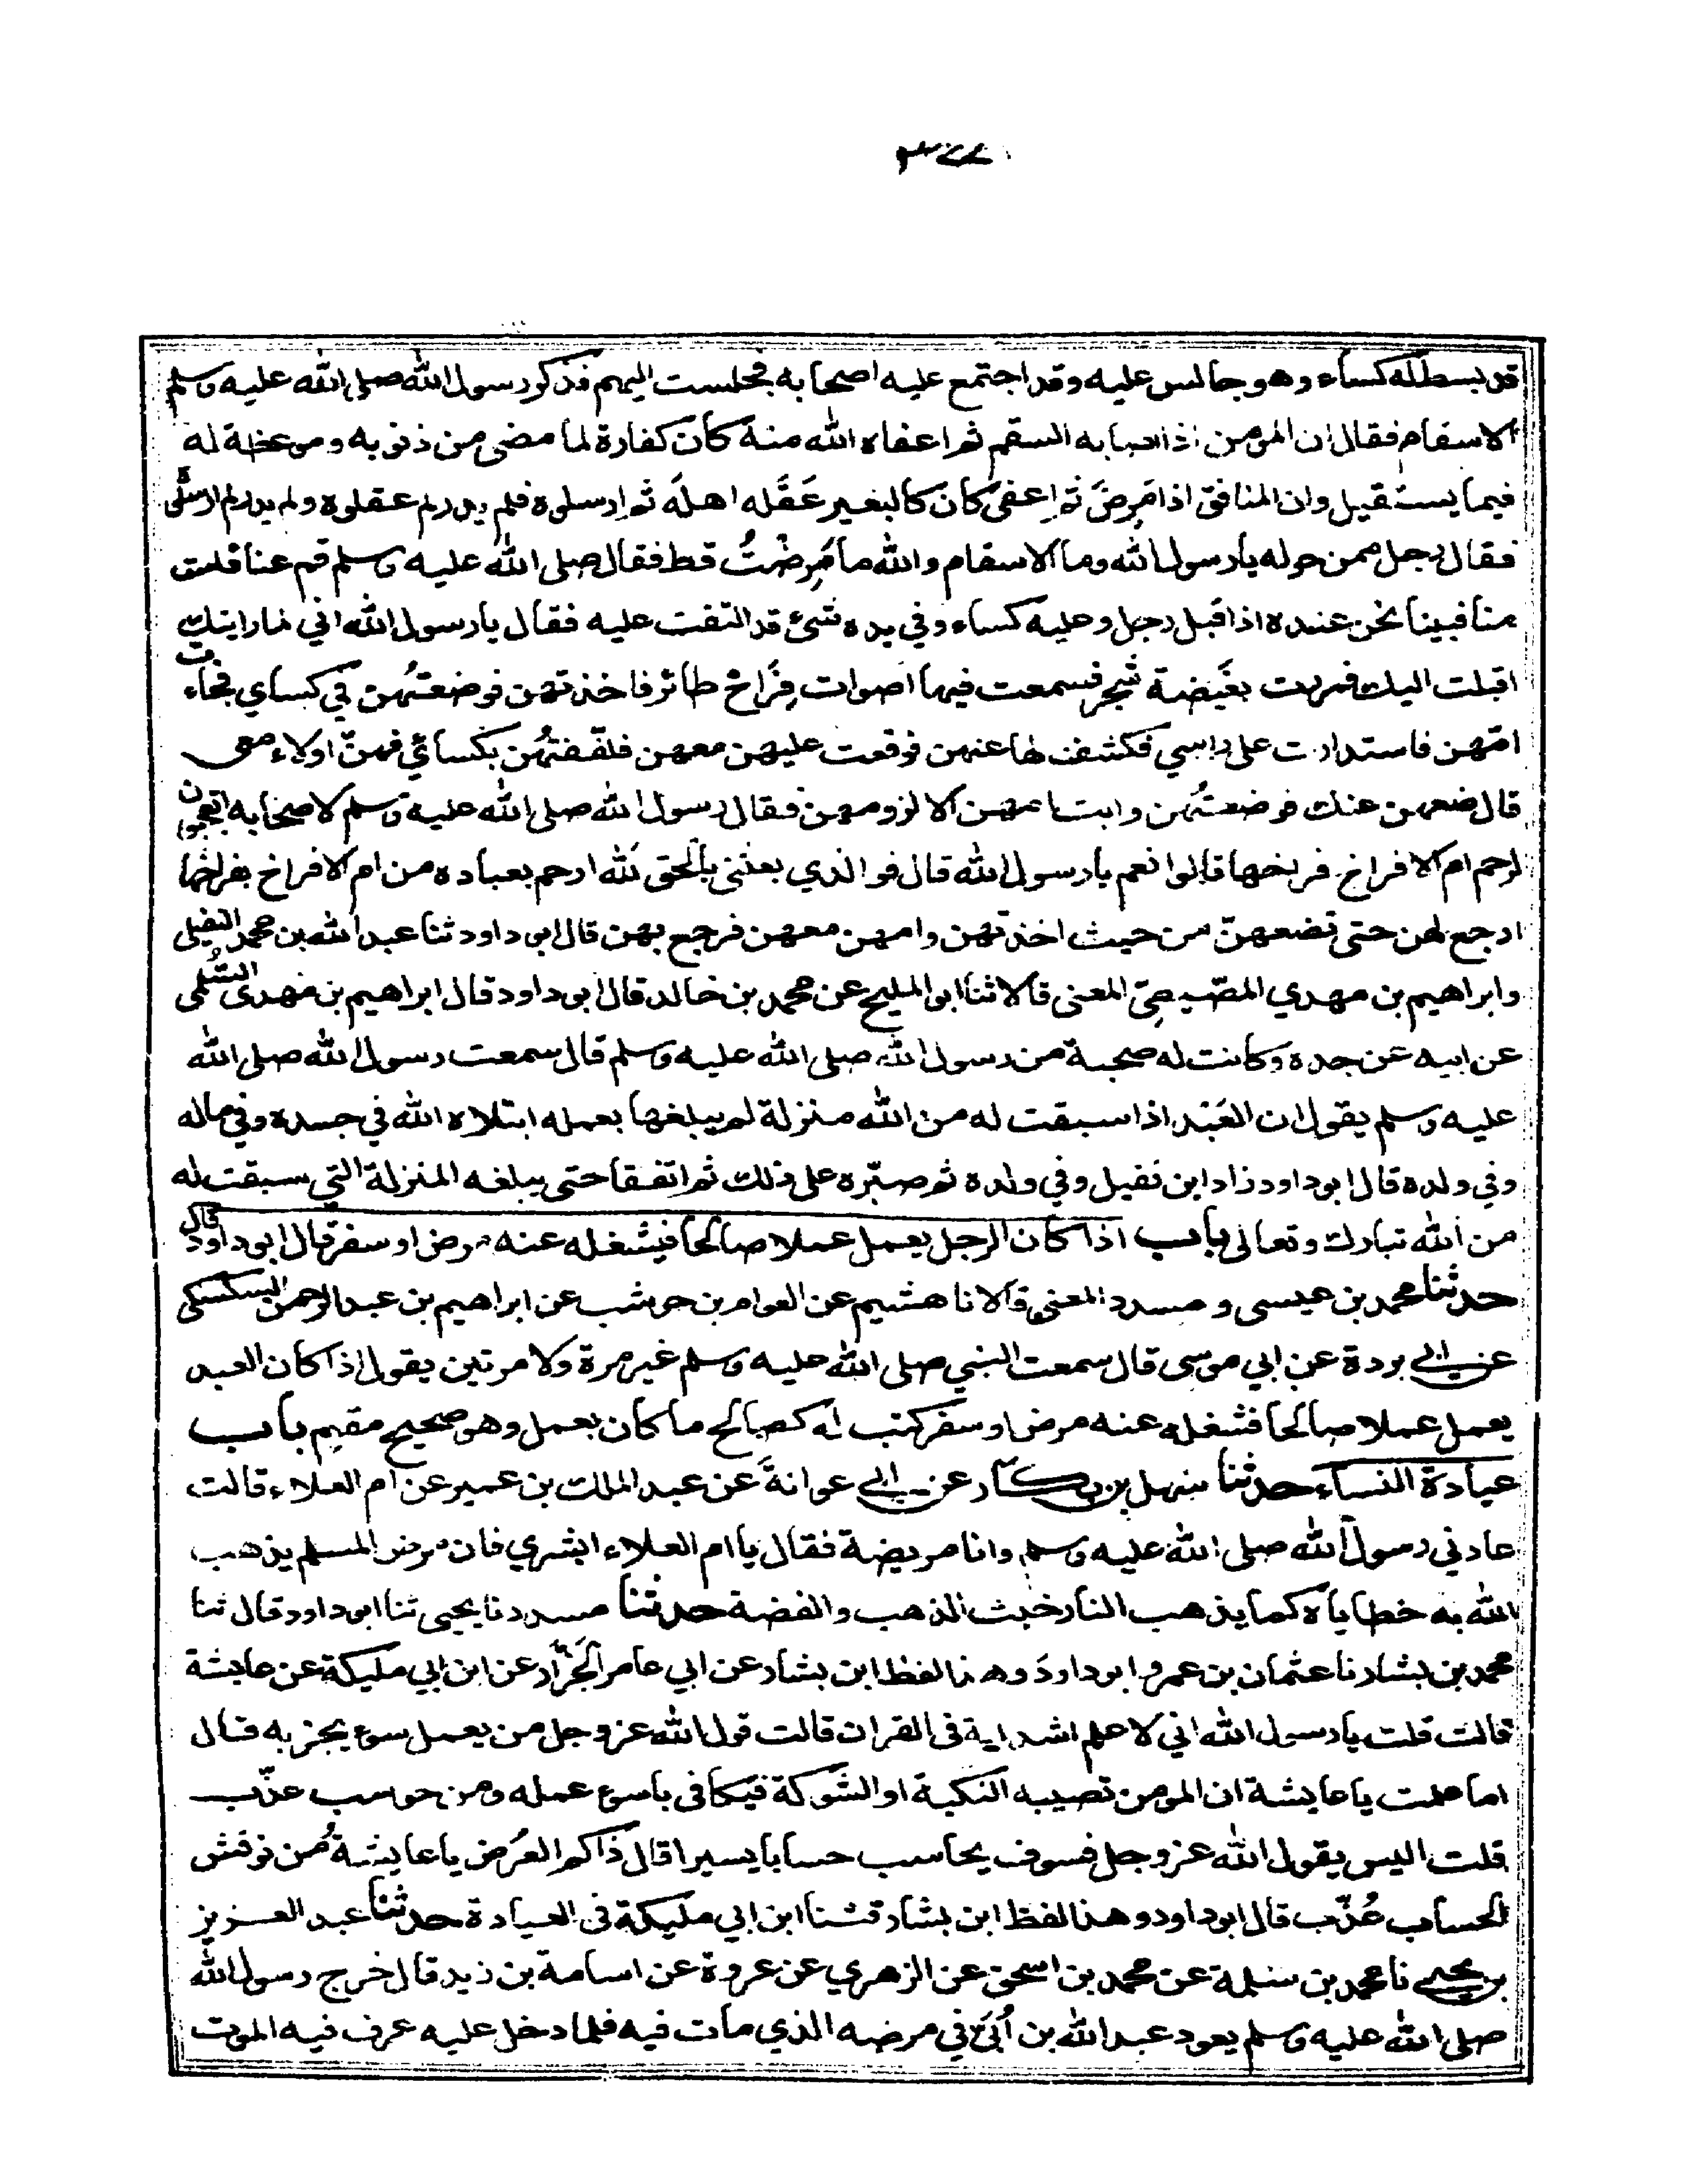 قد بسط له كساء وهو جالس عليه وقد اجتمع عليه اصحابه فجلست اليهم فذكر رسول الله صلى الله عليه وسلم
الاسقام فقال ان المومن اذا اصابه السقم ثم اعفاه الله منه كان كفارة لما مضى من ذنوبه وموعظة له
فيما يستقبل وان المنافق اذا مَرِضَ ثم اعفى كان كالبعير عَقَله اهله ثم ارسلوه فلم يدر لم عقلوه ولم يدر لم ارسلوه
فقال رجل ممن حوله يا رسول الله وما الاسقام والله ما مَرِضْتُ قط فقال صلى الله عليه وسلم قم عنا فلست
منا فبينا نحن عنده اذا قبل رجل وعليه كساء وفي يده شئ قد التفت عليه فقال يا رسول الله اني لما رايتك
اقبلت اليك فمررت بغَيضة شجر فسمعت فيها اصوات فِرَاخ طائر فاخذتهن فوضعتُهن في كساي فجاءت
امّهن فاستدارت على راسي فكشفت لها عنهن فوقعت عليهن معهن فلفّفتهُن بكسائي فهنّ اولاء معي
قال ضعهن عنك فوضعتُهن وابت امهن الا لزومهن فقال رسول الله صلى الله عليه وسلم لاصحابه اتعجبون
لرحم ام الافراخ فرخها قالوا نعم يا رسول الله قال فو الذي بعثني بالحق لله ارحم بعباده من ام الافراخ بفراخها
ارجع لهن حتى تضعهنّ من حيث اخذتهن وامهن معهن فرجع بهن قال ابو داود ثنا عبد الله بن محمد النفيلى
وابراهيم بن مهدي المصّيصِيّ المعنى قالا ثنا ابو المليح عن محمد بن خالد قال ابو داود قال ابراهيم بن مهدى السُّلمى
عن ابيه عن جده وكانت له صحبة من رسول الله صلى الله عليه وسلم قال سمعت رسول الله صلى الله
عليه وسلم يقول ان العَبْد اذا سبقت له من الله منزلة لم يبلغها بعمله ابتلاه الله في جسده وفي ماله
وفي ولده قال ابو داود زاد ابن نفيل وفي ولده ثم صبّره على ذلك ثم اتفقا حتى يبلغه المنزلة التي سبقت له
من الله تبارك وتعالى باب اذا كان الرجل يعمل عملا صالحا فيشغله عنه مرض او سفر قال ابو داود قال
حدثنا محمد بن عيسى ومسدد المعنى قالا نا هشيم عن العوام بن حوشب عن ابراهيم بن عبد الرحمن السكسكى
عن ابي بردة عن ابي موسى قال سمعت النبي صلى الله عليه وسلم غير مرة ولا مرتين يقول اذا كان العبد
يعمل عملا صالحا فشغله عنه مرض او سفر كتب له كصالح ما كان يعمل وهو صحيح مقيم باب
عيادة النساء حدثنا سهل بن بكار عن ابي عوانةَ عن عبد الملك بن عمير عن ام العلاء قالت
عادني رسول الله صلى الله عليه وسلم وانا مريضة فقال يا ام العلاء ابشري فان مرض المسلم يذهب
الله به خطاياه كما يذهب النار خبث الذهب والفضة حدثنا مسدد نا يحيى ثنا ابو داود قال ثنا
محمد بن بشار نا عثمان بن عمرو ابو داودَ وهذا لفظ ابن بشار عن ابي عامر الخَزَّاز عن ابن ابي مليكة عن عايشة
قالت قلت يا رسول الله اني لاعلم اشد اية فى القران قالت قول الله عزوجل من يعمل سوء يجز به قال
اما علمت يا عايشة ان المومن تصيبه النكبة او الشوكة فيكافى باسوء عمله ومن حوسب عذّب
قلت اليس يقول الله عزوجل فسوف يحاسب حسابا يسيرا قال ذاكم العَرض يا عايشة من نوقش
الحساب عُذّب قال ابو داود وهذا لفظ ابن بشار قثنا ابن ابي مليكة فى العيادة حدثنا عبد العزيز
بن يحيى نا محمد بن سلمة عن محمد بن اسحق عن الزهري عن عروة عن اسامة بن زيد قال خرج رسول الله
صلى الله عليه وسلم يعود عبد الله بن اُبَيّ في مرضه الذي مات فيه فلما دخل عليه عرف فيه الموت